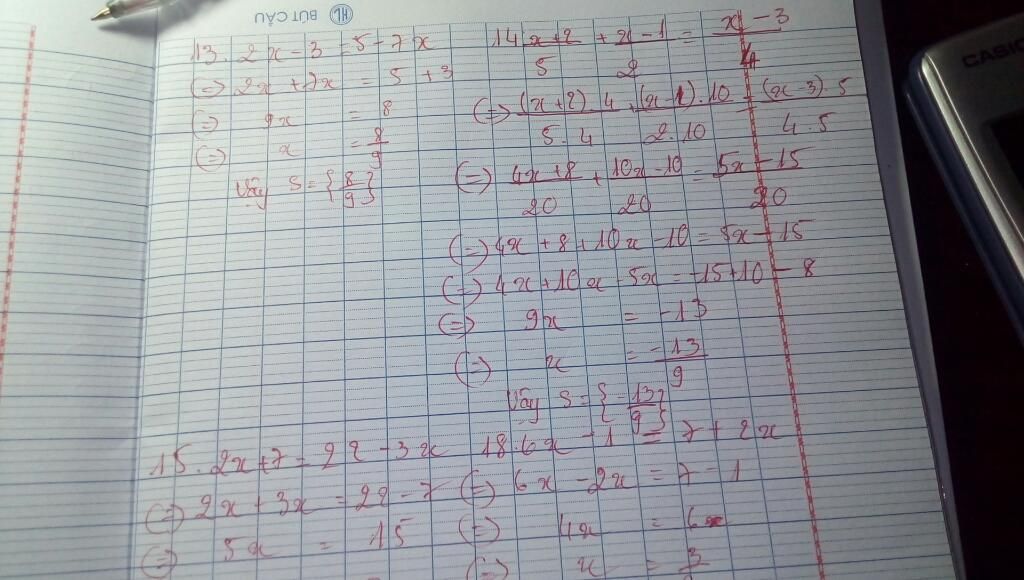 BÚT CẦU
CASIO
13. 2x - 3 = 5 - 7x
(=) 2x + 7x = 5 + 3
(=) 9x = 8
(=) x = 8/9
Vậy S = {8/9}
14 (x+2)/5 + (x-1)/2 = (x-3)/4
(=) (x+2).4/5.4 + (x-1).10/2.10 = (x-3).5/4.5
(=) (4x+8)/20 + (10x-10)/20 = (5x-15)/20
(=) 4x + 8 + 10x - 10 = 5x - 15
(=) 4x + 10x - 5x = -15 + 10 - 8
(=) 9x = -13
(=) x = -13/9
Vậy S = {-13/9}
15. 2x + 7 = 22 - 3x
(=) 2x + 3x = 22 - 7
(=) 5x = 15
18. 6x + 1 = 7 + 2x
(=) 6x - 2x = 7 - 1
(=) 4x = 6
(=) x = 3